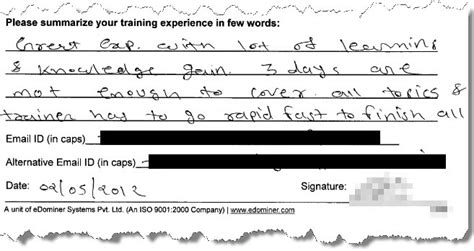 Please summarize your training experience in few words:
Great Exp. with lot of learning
& knowledge gain. 3 days are
not enough to cover all topics &
trainer has to go rapid fast to finish all
Email ID (in caps)
Alternative Email ID (in caps)
Date: 02/05/2012 Signature:
A unit of eDominer Systems Pvt. Ltd. (An ISO 9001:2000 Company) | www.edominer.com